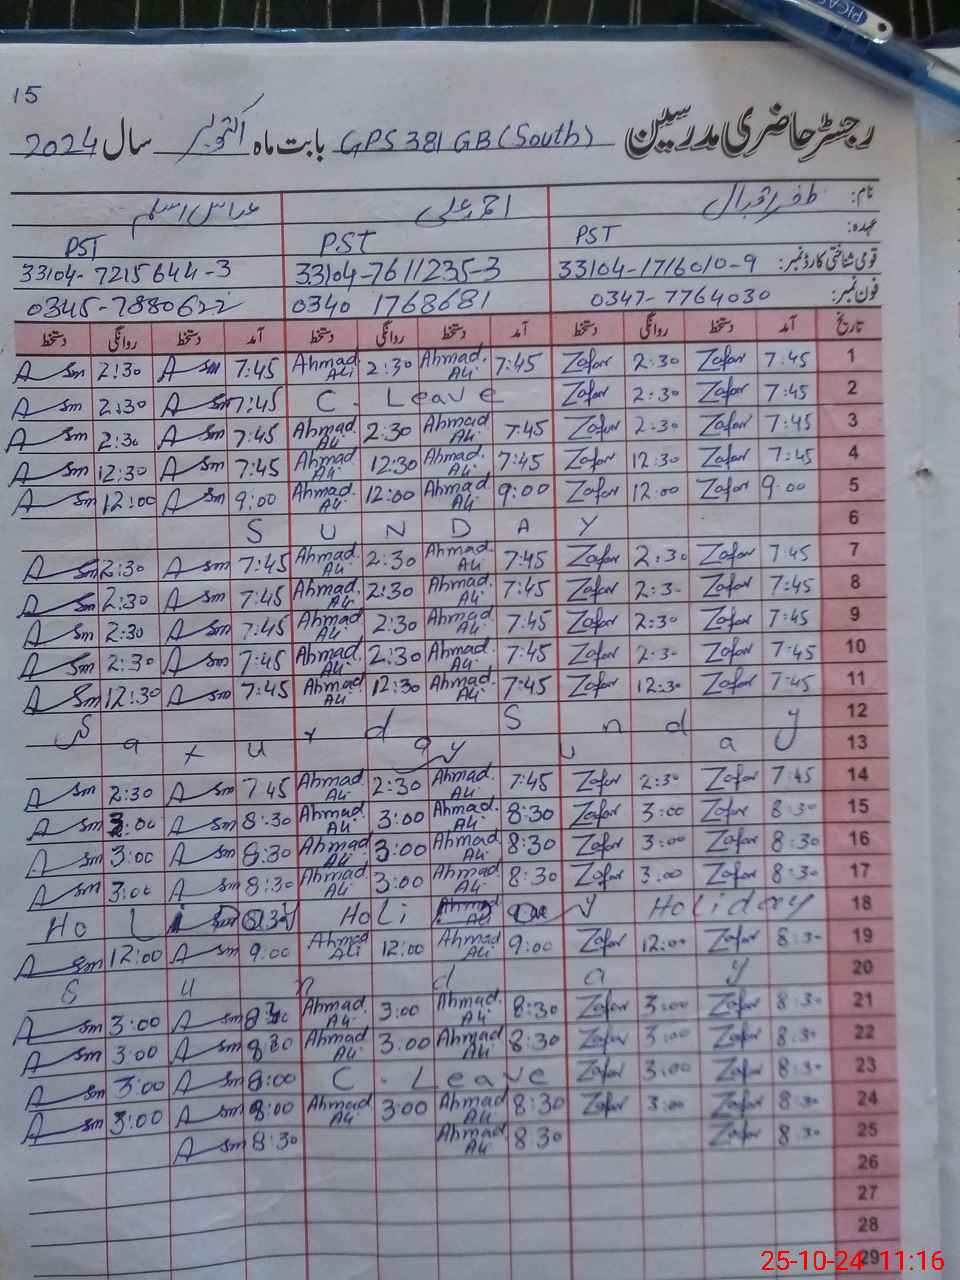 PICASSO
15
رجسٹر حاضری مدرسین GPS 381 GB (South) بابت ماہ اکتوبر سال 2024
نام: ظفر اقبال احمد علی
عہدہ: PST PST PST
قومی شناختی کارڈ نمبر: 33104-1716010-9 33104-7611235-3 33104-7215644-3
فون نمبر: 0347-7764030 0340 1768681 0345-7880622
تاریخ آمد دستخط روانگی دستخط آمد دستخط روانگی دستخط آمد دستخط روانگی دستخط
1 7:45 Zafar 2:30 Zafar 7:45 Ahmad Ali 2:30 Ahmad Ali 7:45 A Sm 2:30 A Sm
2 7:45 Zafar 2:30 Zafar C - Leave 7:45 A Sm 2:30 A Sm
3 7:45 Zafar 2:30 Zafar 7:45 Ahmad Ali 2:30 Ahmad Ali 7:45 A Sm 2:30 A Sm
4 7:45 Zafar 12:30 Zafar 7:45 Ahmad Ali 12:30 Ahmad Ali 7:45 A Sm 12:30 A Sm
5 9:00 Zafar 12:00 Zafar 9:00 Ahmad Ali 12:00 Ahmad Ali 9:00 A Sm 12:00 A Sm
6 SUNDAY
7 7:45 Zafar 2:30 Zafar 7:45 Ahmad Ali 2:30 Ahmad Ali 7:45 A Sm 2:30 A Sm
8 7:45 Zafar 2:30 Zafar 7:45 Ahmad Ali 2:30 Ahmad Ali 7:45 A Sm 2:30 A Sm
9 7:45 Zafar 2:30 Zafar 7:45 Ahmad Ali 2:30 Ahmad Ali 7:45 A Sm 2:30 A Sm
10 7:45 Zafar 2:30 Zafar 7:45 Ahmad Ali 2:30 Ahmad Ali 7:45 A Sm 2:30 A Sm
11 7:45 Zafar 12:30 Zafar 7:45 Ahmad Ali 12:30 Ahmad Ali 7:45 A Sm 12:30 A Sm
12 Saturday
13 Sunday
14 7:45 Zafar 2:30 Zafar 7:45 Ahmad Ali 2:30 Ahmad Ali 7:45 A Sm 2:30 A Sm
15 8:30 Zafar 3:00 Zafar 8:30 Ahmad Ali 3:00 Ahmad Ali 8:30 A Sm 3:00 A Sm
16 8:30 Zafar 3:00 Zafar 8:30 Ahmad Ali 3:00 Ahmad Ali 8:30 A Sm 3:00 A Sm
17 8:30 Zafar 3:00 Zafar 8:30 Ahmad Ali 3:00 Ahmad Ali 8:30 A Sm 3:00 A Sm
18 Holiday Holiday Holiday
19 8:30 Zafar 12:00 Zafar 9:00 Ahmad Ali 12:00 Ahmad Ali 9:00 A Sm 12:00 A Sm
20 Sunday
21 8:30 Zafar 3:00 Zafar 8:30 Ahmad Ali 3:00 Ahmad Ali 8:30 A Sm 3:00 A Sm
22 8:30 Zafar 3:00 Zafar 8:30 Ahmad Ali 3:00 Ahmad Ali 8:30 A Sm 3:00 A Sm
23 8:30 Zafar 3:00 Zafar C - Leave 8:00 A Sm 3:00 A Sm
24 8:30 Zafar 3:00 Zafar 8:30 Ahmad Ali 3:00 Ahmad Ali 8:00 A Sm 3:00 A Sm
25 8:30 Zafar 8:30 Ahmad Ali 8:30 A Sm
26
27
28
29
25-10-24 11:16